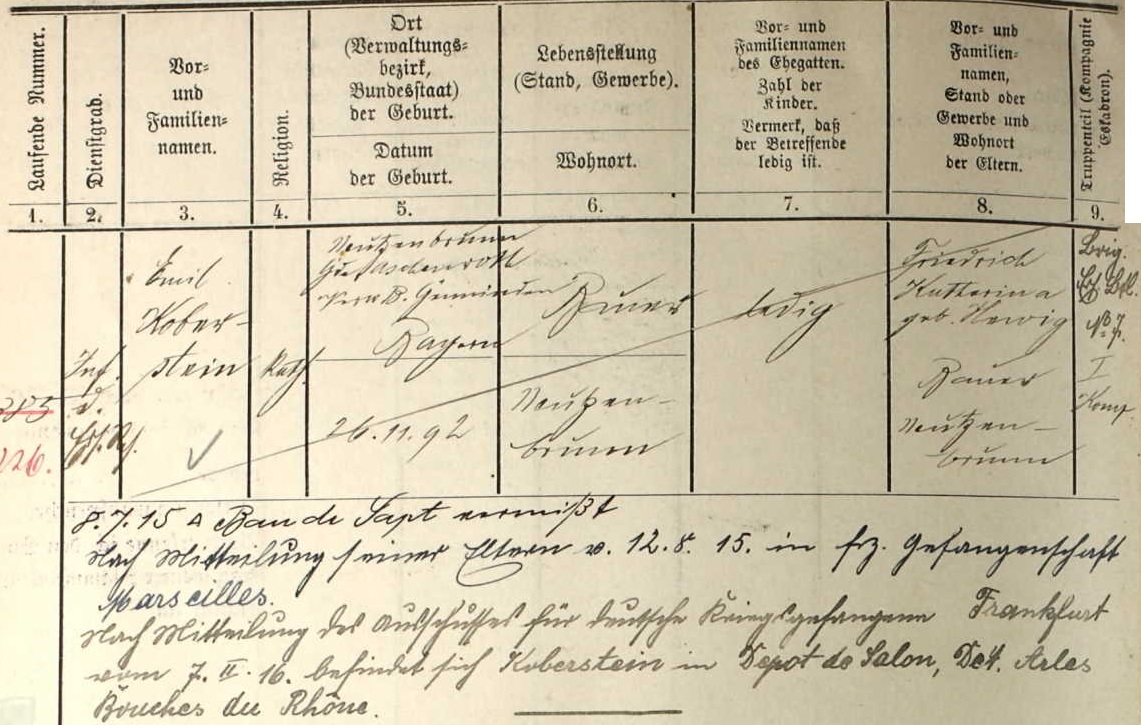 Laufende Nummer.
Dienstgrad.
Vor-
und
Familien-
namen.
Religion.
Ort
(Verwaltungs-
bezirk,
Bundesstaat)
der Geburt.
Datum
der Geburt.
Lebensstellung
(Stand, Gewerbe).
Wohnort.
Vor- und
Familiennamen
des Ehegatten.
Zahl der
Kinder.
Vermerk, daß
der Betreffende
ledig ist.
Vor- und
Familien-
namen,
Stand oder
Gewerbe und
Wohnort
der Eltern.
Truppenteil (Kompagnie
Eskadron).
1. 2. 3. 4. 5. 6. 7. 8. 9.
226.
Inf.
d.
Emil
Kober-
stein
Kath.
Neutzenbrunn
Gemünden
Bayern
26.11.92
Bauer
Neutzen-
brunn
ledig
Friedrich
Katharina
geb. Herwig
Bauer
Neutzen-
brunn
Brig.
Btl.
No 7.
I
Komp.
8.7.15 Ban de Sapt vermißt
Nach Mitteilung seiner Eltern v. 12.8.15. in frz. Gefangenschaft
Marseilles.
Nach Mitteilung des Ausschusses für deutsche Kriegsgefangene Frankfurt
vom 7.II.16. befindet sich Koberstein in Depot de Salon, Det. Arles
Bouches du Rhône.